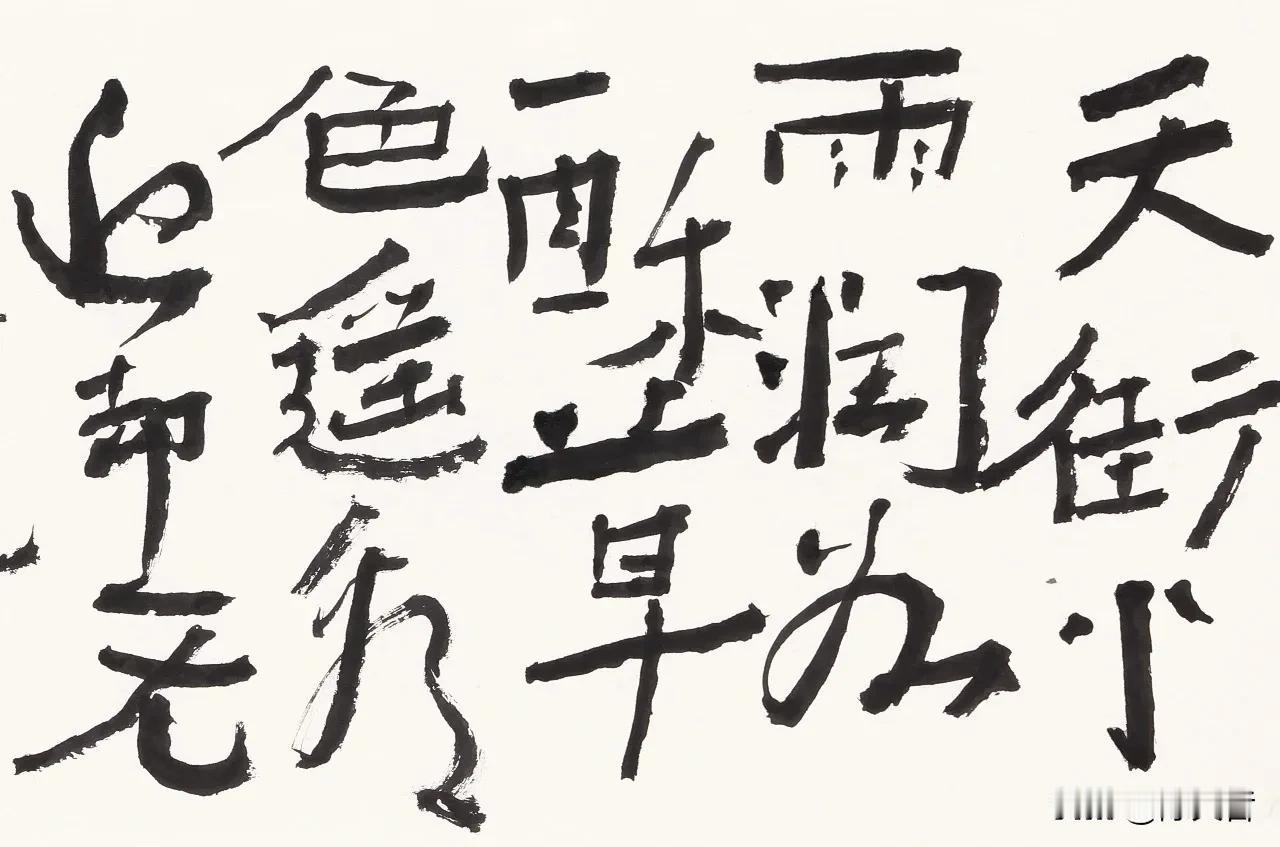 天街小
雨润如
酥草
色遥看
近却无